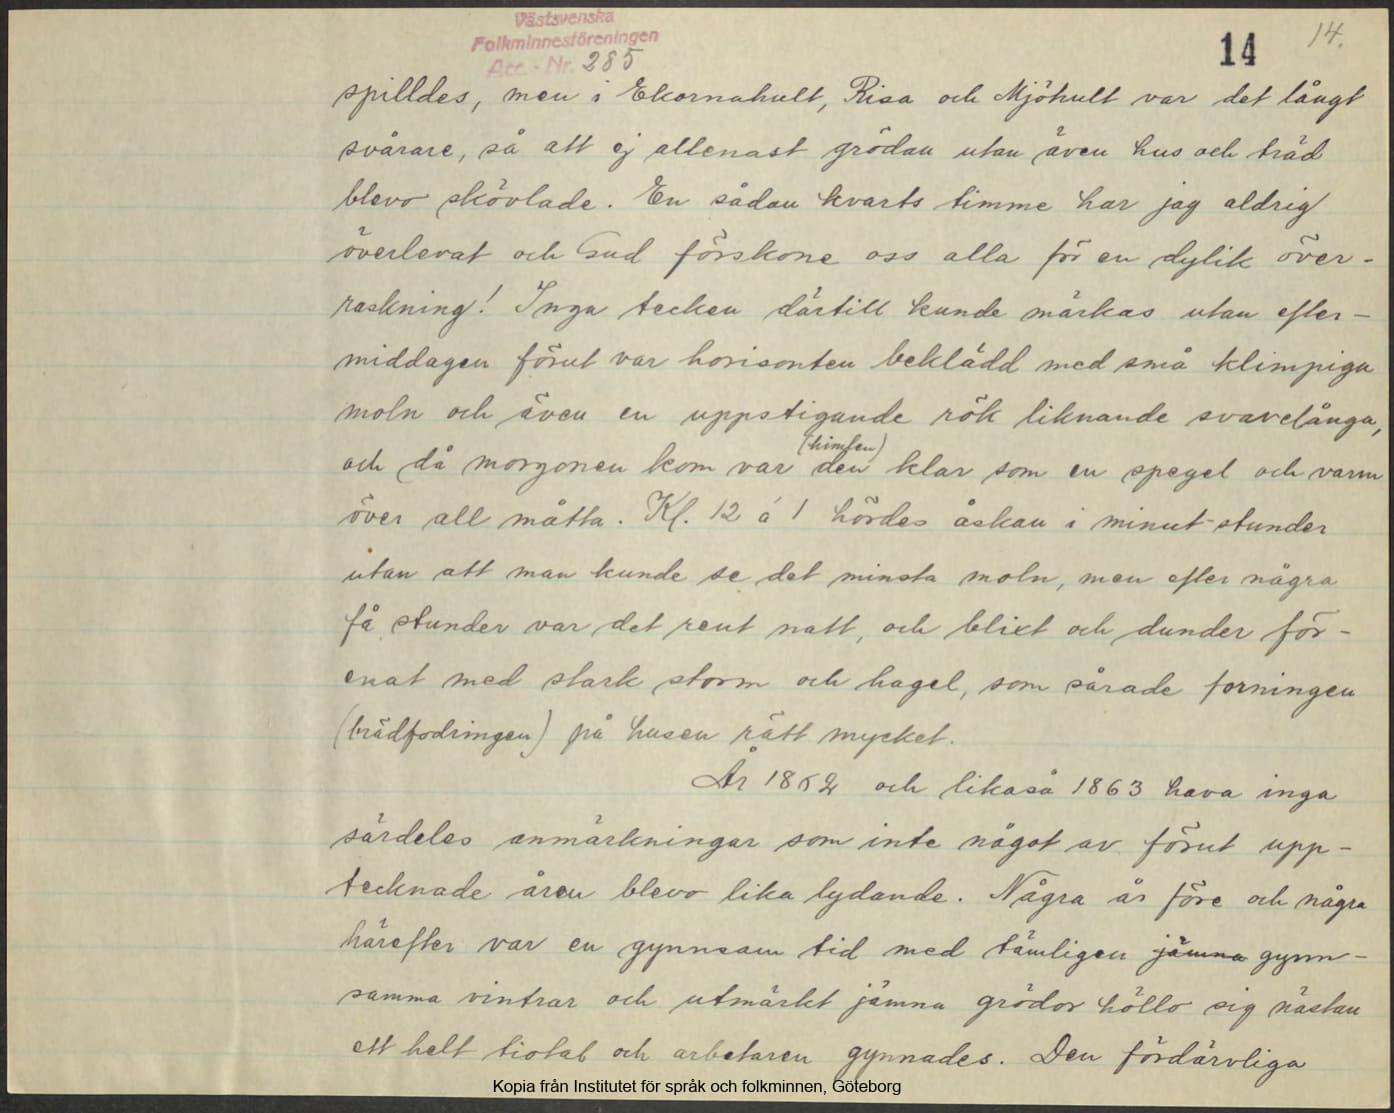 Västsvenska
Folkminnesföreningen
Acc.-Nr. 285
14
14.
spilldes, men i Ekornahult, Risa och Mjöhult var det långt
svårare, så att ej allenast grödan utan även hus och träd
blevo skövlade. En sådan kvarts timme har jag aldrig
överlevat och Gud förskone oss alla för en dylik över-
raskning! Inga tecken därtill kunde märkas utan efter-
middagen förut var horisonten beklädd med små klimpiga
moln och även en uppstigande rök liknande svavelånga,
(himlen)
och då morgonen kom var den klar som en spegel och varm
över all måtta. Kl. 12 á 1 hördes åskan i minut-stunder
utan att man kunde se det minsta moln, men efter några
få stunder var det rent natt, och blixt och dunder för-
enat med stark storm och hagel, som sårade forningen
(brädfodringen) på husen rätt mycket.
År 1862 och likaså 1863 hava inga
särdeles anmärkningar som inte något av förut upp-
tecknade åren blevo lika lydande. Några år före och några
härefter var en gynnsam tid med tämligen jämna gynn-
samma vintrar och utmärkt jämna grödor höllo sig nästan
ett helt tiotal och arbetaren gynnades. Den fördärvliga
Kopia från Institutet för språk och folkminnen, Göteborg